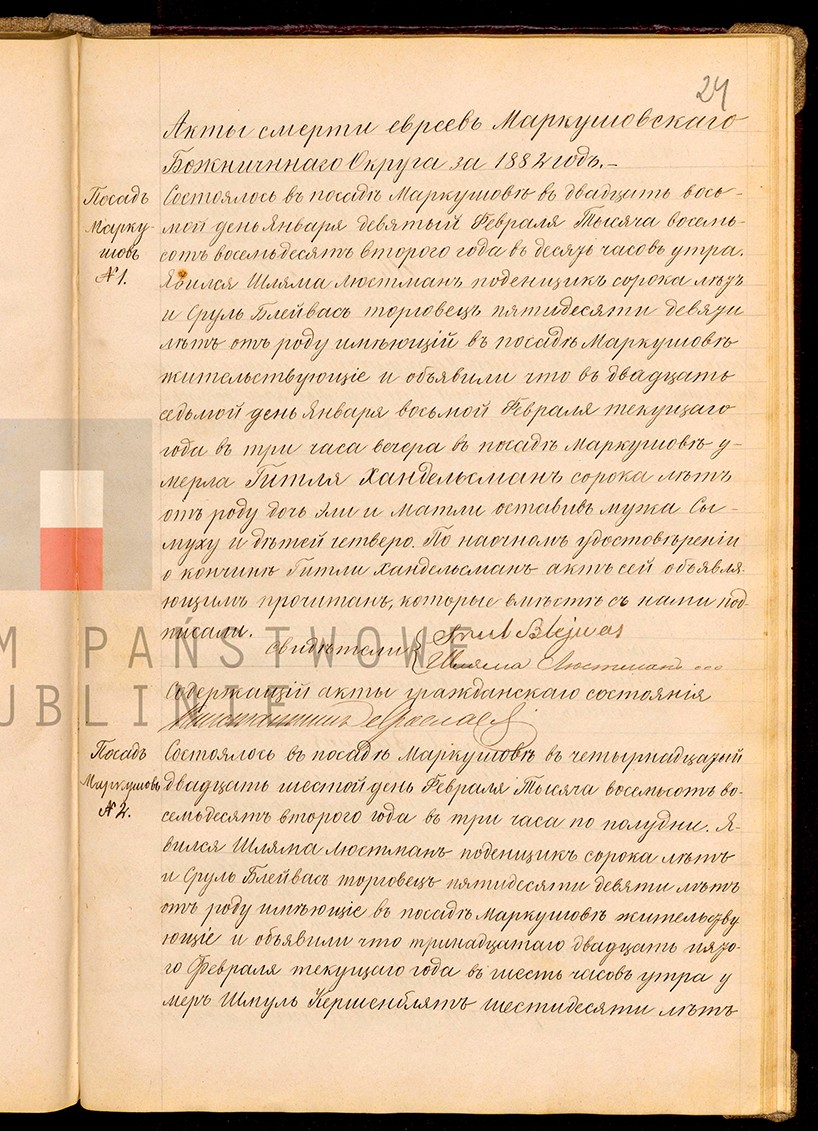 24
Акты смерти евреевъ Маркушовскаго
Божничнаго Округа за 1882 годъ.—
Посадъ
Марку-
шовъ
№ 1.
Состоялось въ посадѣ Маркушовѣ въ двадцать вось-
мой день Января девятый Февраля Тысяча восемь-
сотъ восемьдесятъ второго года въ десять часовъ утра.
Явился Шляма Люстманъ поденщикъ сорока лѣтъ
и Сруль Блейвасъ торговецъ пятидесяти девяти
лѣтъ отъ роду имѣющій въ посадѣ Маркушовѣ
жительствующіе и объявили что въ двадцать
седьмой день Января восьмой Февраля текущаго
года въ три часа вечера въ посадѣ Маркушовѣ у-
мерла Гитля Хандельсманъ сорока лѣтъ
отъ роду дочь Эли и Матли оставивъ мужа Сы-
муху и дѣтей четверо. По наочномъ удостовѣреніи
о кончинѣ Гитли Хандельсманъ актъ сей объявля-
ющимъ прочитанъ, которые вмѣстѣ съ нами под-
писали.
свидѣтели { Srul Blejwas
Шляма Люстманъ
Содержащій акты гражданскаго состоянія
Посадъ
Маркушовъ
№ 2.
Состоялось въ посадѣ Маркушовѣ въ четырнадцатый
двадцать шестой день Февраля Тысяча восемьсотъ во-
семьдесятъ второго года въ три часа по полудни. Я-
вился Шляма Люстманъ поденщикъ сорока лѣтъ
и Сруль Блейвасъ торговецъ пятидесяти девяти лѣтъ
отъ роду имѣющіе въ посадѣ Маркушовѣ жительству
ющіе и объявили что тринадцатаго двадцать пято-
го Февраля текущаго года въ шесть часовъ утра у
меръ Шмуль Кершенблятъ шестидесяти лѣтъ
M PAŃSTWOWE
UBLINIE